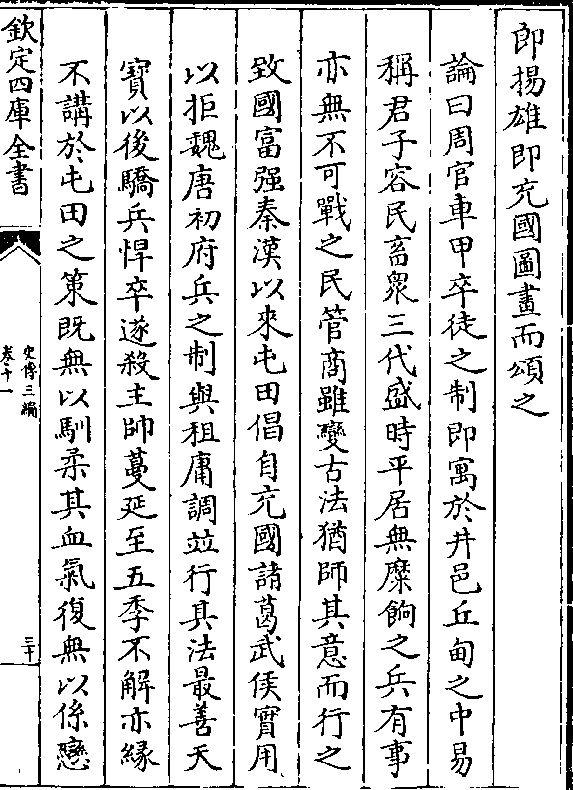 即揚雄即充國圖畫而頌之
論曰周官車甲卒徒之制即寓於井邑丘甸之中易
稱君子容民畜衆三代盛時平居無糜餉之兵有事
亦無不可戰之民管商雖變古法猶師其意而行之
致國富强秦漢以來屯田倡自充國諸葛武侯實用
以拒魏唐初府兵之制與租庸調竝行其法最善天
寳以後驕兵悍卒遂殺主帥蔓延至五季不解亦緣
不講於屯田之策既無以馴柔其血氣復無以係戀
欽定四庫全書
史傳三編
卷十一
三十